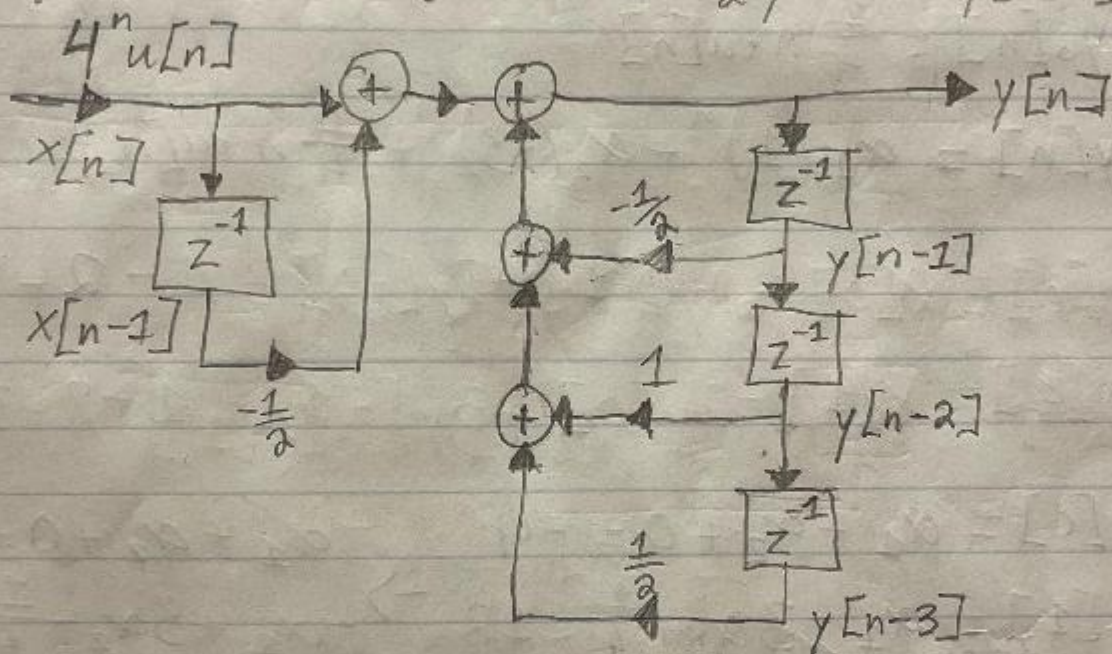 4^n u[n]
x[n]
+
+
y[n]
z^-1
z^-1
-1/2
+
y[n-1]
x[n-1]
z^-1
-1/2
1
+
y[n-2]
z^-1
1/2
y[n-3]